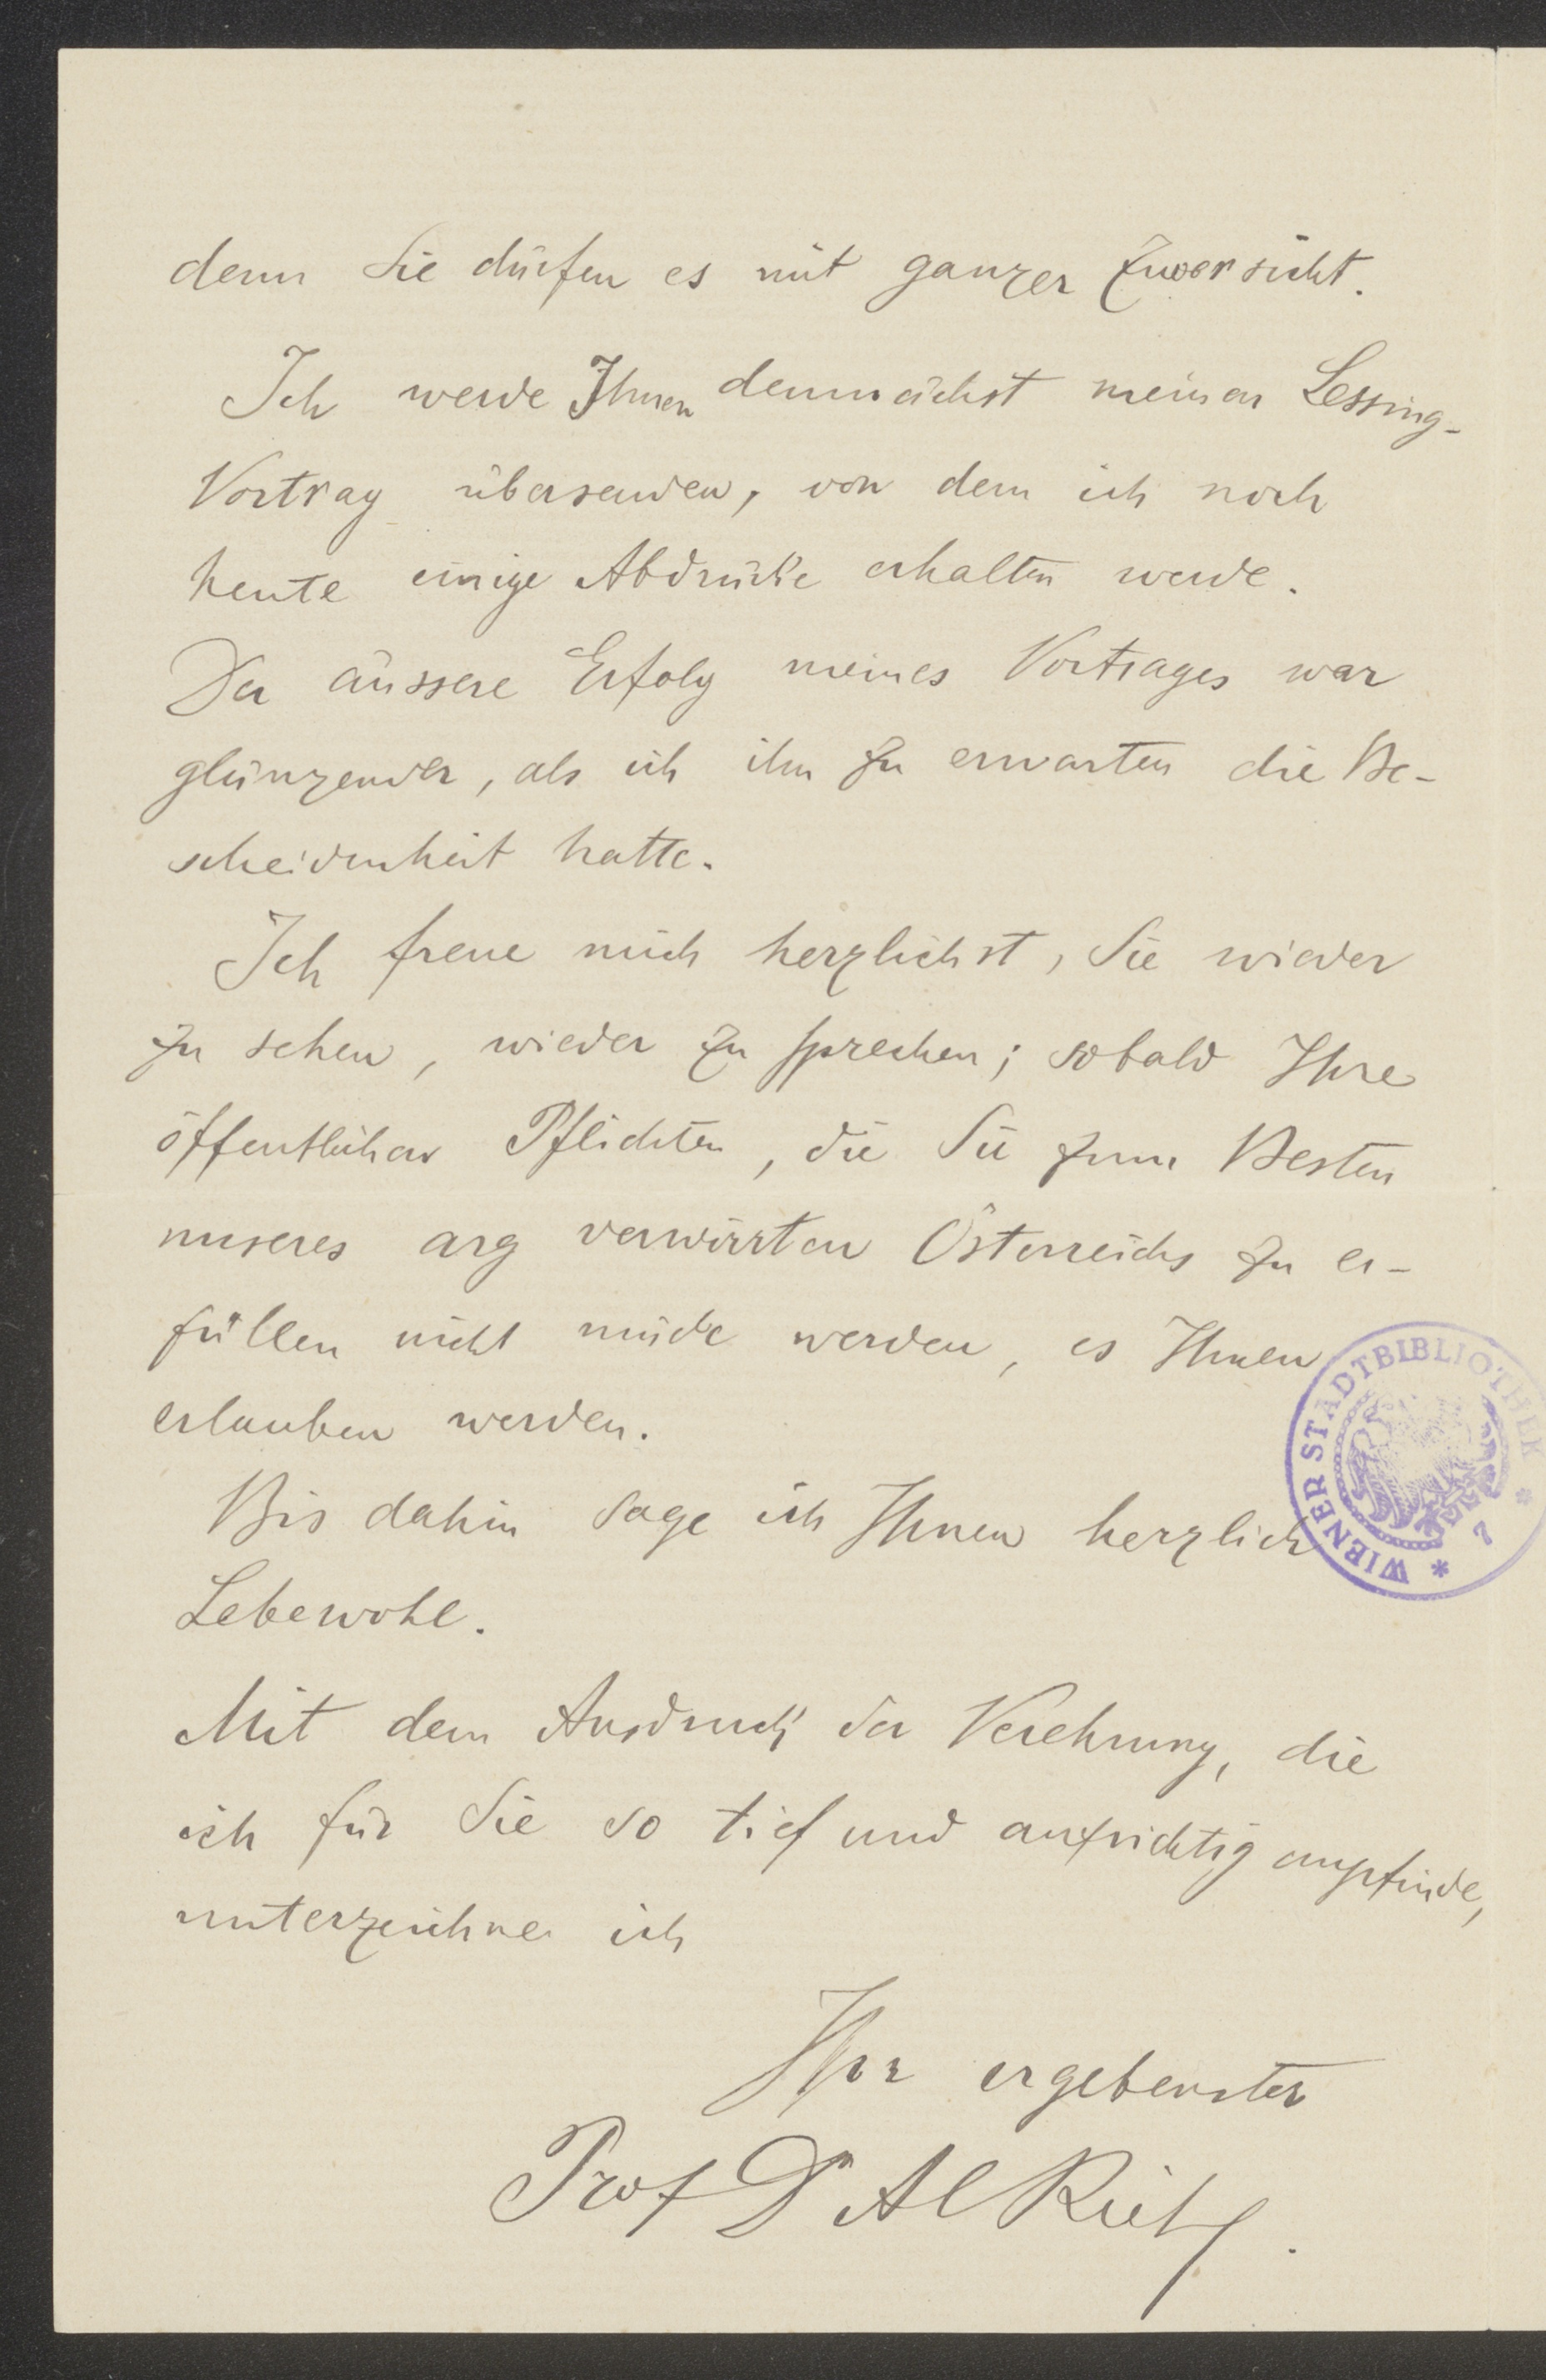 denn Sie dürfen es mit ganzer Zuversicht.
Ich werde Ihnen demnächst meinen Lessing-
Vortrag übersenden, von dem ich noch
heute einige Abdrücke erhalten werde.
Der äussere Erfolg meines Vortrages war
glänzender, als ich ihn zu erwarten die Be-
scheidenheit hatte.
Ich freue mich herzlichst, Sie wieder
zu sehen, wieder zu sprechen; sobald Ihre
öffentlichen Pflichten, die Sie zum Besten
unseres arg verwirrten Österreichs zu er-
füllen nicht müde werden, es Ihnen
erlauben werden.
Bis dahin sage ich Ihnen herzlich
Lebewohl.
Mit dem Ausdruck der Verehrung, die
ich für Sie so tief und aufrichtig empfinde,
unterzeichne ich
Ihr ergebenster
Prof Dr Al Riehl.
WIENER STADTBIBLIOTHEK * 7 *